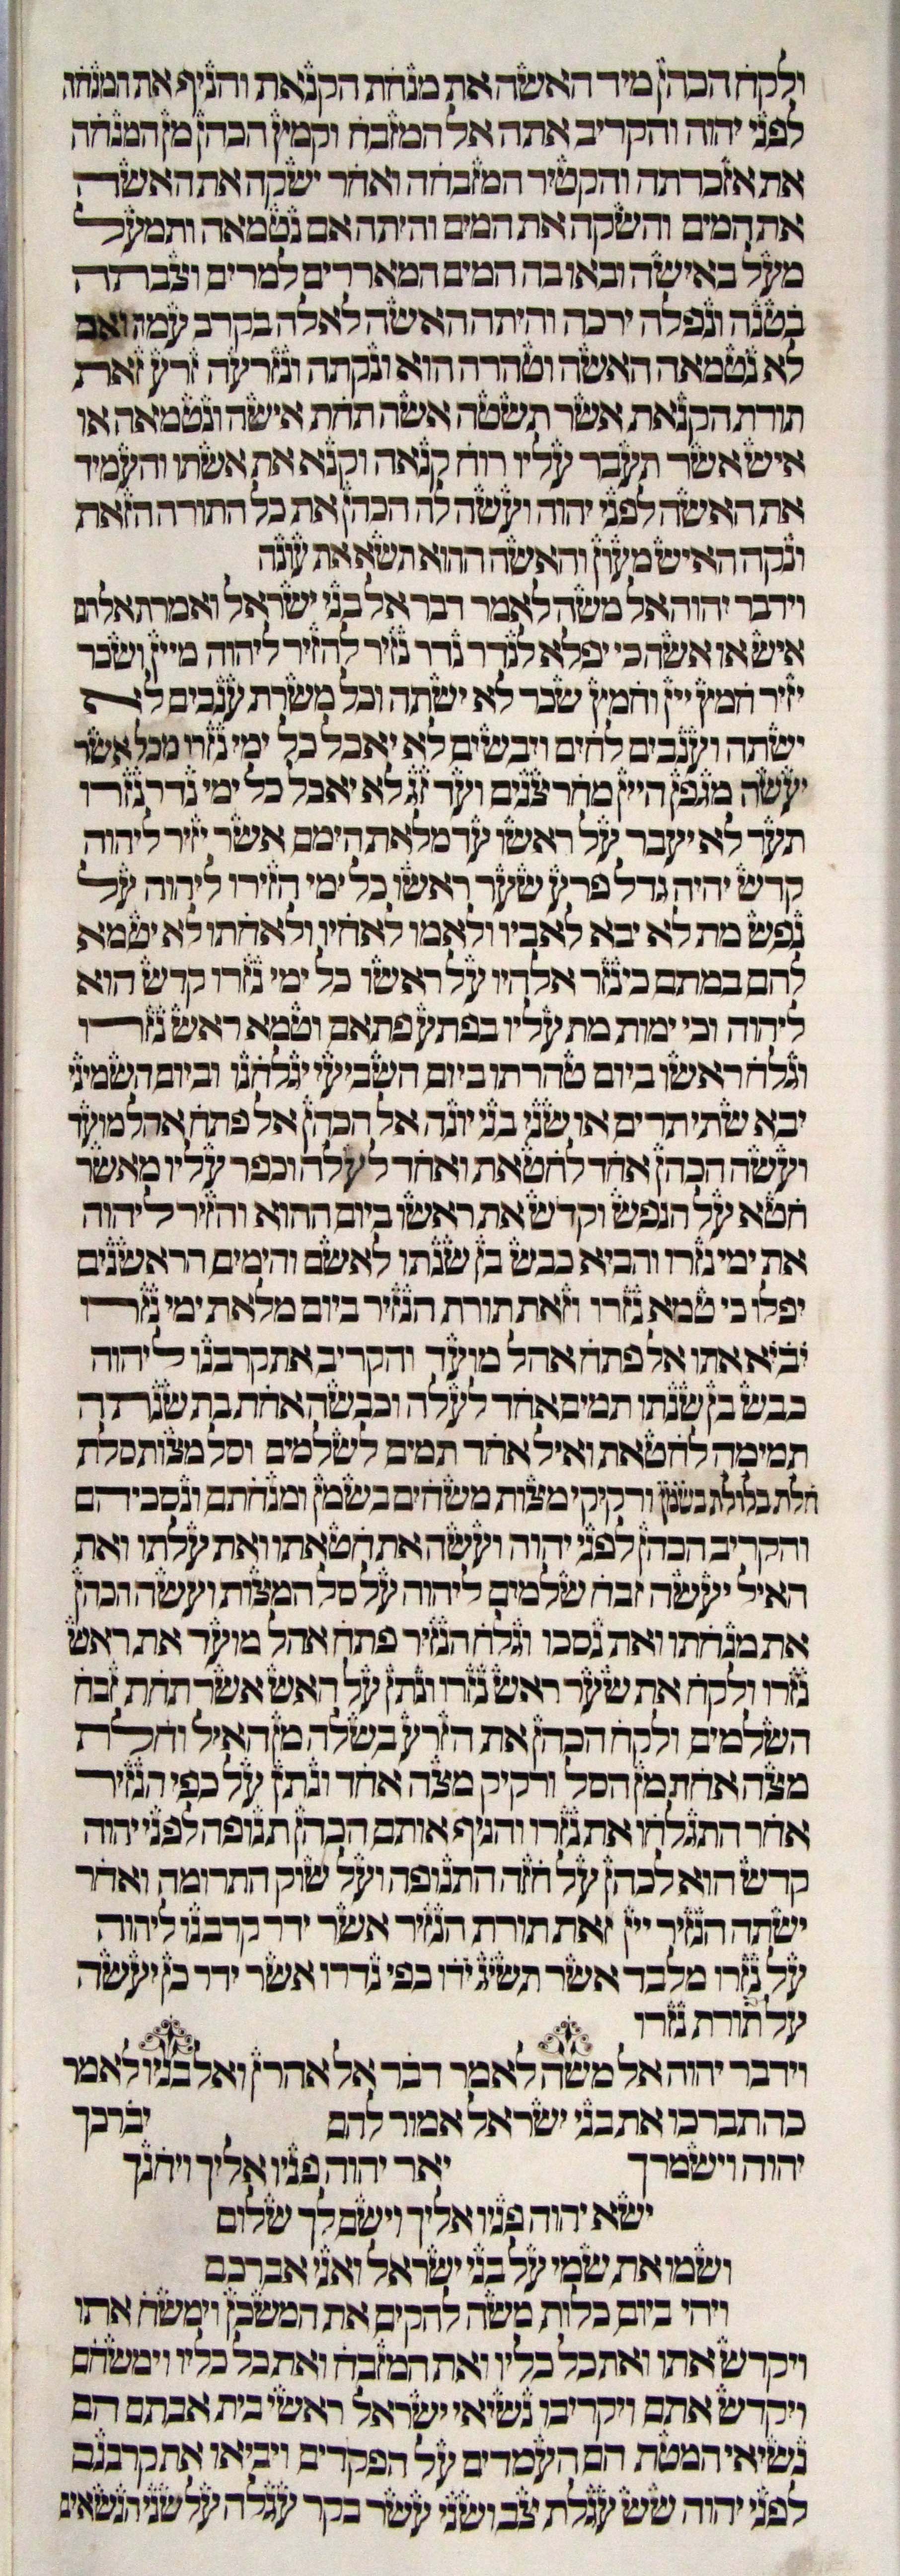 ולקח הכהן מיד האשה את מנחת הקנאת והניף את המנחה
לפני יהוה והקריב אתה אל המזבח וקמץ הכהן מן המנחה
את אזכרתה והקטיר המזבחה ואחר ישקה את האשה
את המים והשקה את המים והיתה אם נטמאה ותמעל
מעל באישה ובאו בה המים המאררים למרים וצבתה
בטנה ונפלה ירכה והיתה האשה לאלה בקרב עמה ואם
לא נטמאה האשה וטהרה הוא ונקתה ונזרעה זרע זאת
תורת הקנאת אשר תשטה אשה תחת אישה ונטמאה או
איש אשר תעבר עליו רוח קנאה וקנא את אשתו והעמיד
את האשה לפני יהוה ועשה לה הכהן את כל התורה הזאת
ונקה האיש מעון והאשה ההוא תשא את עונה
וידבר יהוה אל משה לאמר דבר אל בני ישראל ואמרת אלהם
איש או אשה כי יפלא לנדר נדר נזיר להזיר ליהוה מיין ושכר
יזיר חמץ יין וחמץ שכר לא ישתה וכל משרת ענבים לא
ישתה וענבים לחים ויבשים לא יאכל כל ימי נזרו מכל אשר
יעשה מגפן היין מחרצנים ועד זג לא יאכל כל ימי נדר נזרו
תער לא יעבר על ראשו עד מלאת הימם אשר יזיר ליהוה
קדש יהיה גדל פרע שער ראשו כל ימי הזירו ליהוה על
נפש מת לא יבא לאביו ולאמו לאחיו ולאחתו לא יטמא
להם במתם כי נזר אלהיו על ראשו כל ימי נזרו קדש הוא
ליהוה וכי ימות מת עליו בפתע פתאם וטמא ראש נזרו
וגלח ראשו ביום טהרתו ביום השביעי יגלחנו וביום השמיני
יבא שתי תרים או שני בני יונה אל הכהן אל פתח אהל מועד
ועשה הכהן אחד לחטאת ואחד לעלה וכפר עליו מאשר
חטא על הנפש וקדש את ראשו ביום ההוא והזיר ליהוה
את ימי נזרו והביא כבש בן שנתו לאשם והימים הראשנים
יפלו כי טמא נזרו וזאת תורת הנזיר ביום מלאת ימי נזרו
יביא אתו אל פתח אהל מועד והקריב את קרבנו ליהוה
כבש בן שנתו תמים אחד לעלה וכבשה אחת בת שנתה
תמימה לחטאת ואיל אחד תמים לשלמים וסל מצות סלת
חלת בלולת בשמן ורקיקי מצות משחים בשמן ומנחתם ונסכיהם
והקריב הכהן לפני יהוה ועשה את חטאתו ואת עלתו ואת
האיל יעשה זבח שלמים ליהוה על סל המצות ועשה הכהן
את מנחתו ואת נסכו וגלח הנזיר פתח אהל מועד את ראש
נזרו ולקח את שער ראש נזרו ונתן על האש אשר תחת זבח
השלמים ולקח הכהן את הזרע בשלה מן האיל וחלת
מצה אחת מן הסל ורקיק מצה אחד ונתן על כפי הנזיר
אחר התגלחו את נזרו והניף אותם הכהן תנופה לפני יהוה
קדש הוא לכהן על חזה התנופה ועל שוק התרומה ואחר
ישתה הנזיר יין זאת תורת הנזיר אשר ידר קרבנו ליהוה
על נזרו מלבד אשר תשיג ידו כפי נדרו אשר ידר כן יעשה
על תורת נזרו
וידבר יהוה אל משה לאמר דבר אל אהרן ואל בניו לאמר
כה תברכו את בני ישראל אמור להם יברכך
יהוה וישמרך יאר יהוה פניו אליך ויחנך
ישא יהוה פניו אליך וישם לך שלום
ושמו את שמי על בני ישראל ואני אברכם
ויהי ביום כלות משה להקים את המשכן וימשח אתו
ויקדש אתו ואת כל כליו ואת המזבח ואת כל כליו וימשחם
ויקדש אתם ויקריבו נשיאי ישראל ראשי בית אבתם הם
נשיאי המטת הם העמדים על הפקדים ויביאו את קרבנם
לפני יהוה שש עגלת צב ושני עשר בקר עגלה על שני הנשאים